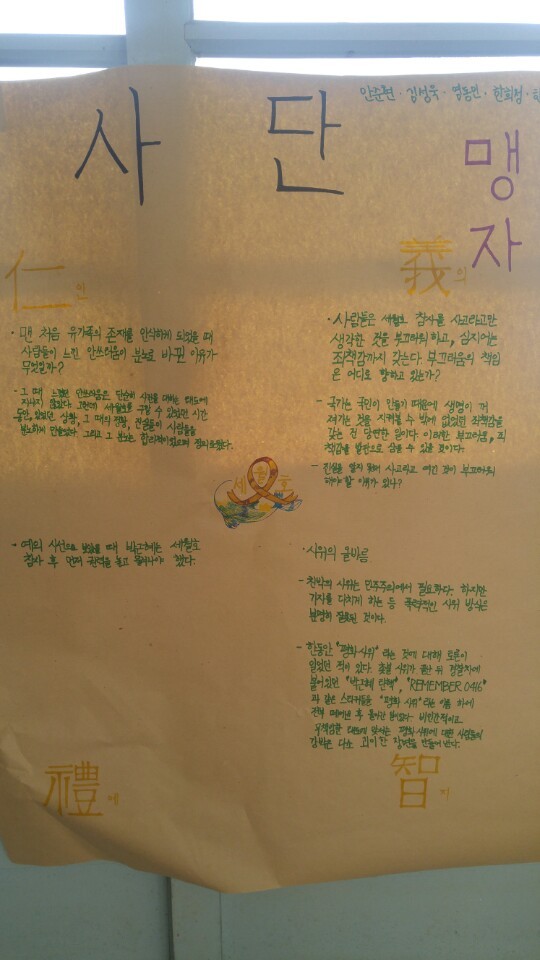 사 단
맹
자
안준현 · 김성욱 · 염동민 · 한희정 ·
仁 인
· 맨 처음 유가족의 존재를 인식하게 되었을 때
사람들이 느낀 안쓰러움이 분노로 바뀐 이유가
무엇일까?
- 그 때 느꼈던 안쓰러움은 단순히 사태를 대하는 태도에
지나지 않았다. 그런데 세월호를 구할 수 있었던 시간
동안, 있었던 상황, 그 때의 진상, 진실들이 사람들을
분노하게 만들었다. 그리고 그 분노는 합리적이었으며 정의로웠다.
義 의
· 사람들은 세월호 참사를 사고라고만
생각한 것을 부끄러워 하고, 심지어는
죄책감까지 갖는다. 부끄러움의 책임
은 어디로 향하고 있는가?
- 국가는 국민이 만들기 때문에 생명이 꺼
져가는 것을 지켜볼 수 밖에 없었던 죄책감을
갖는 건 당연한 일이다. 이러한 부끄러움, 죄
책감을 발판으로 삼을 수 있을 것이다.
- 진실을 알지 못해 사고라고 여긴 것이 부끄러워
해야 할 이유가 있나?
세월호
· 예의 시선으로 보았을 때 박근혜는 세월호
참사 후 먼저 권력을 놓고 물러나야 했다.
禮 예
· 시위의 올바름
- 천박의 시위는 민주주의에서 필요하다. 하지만
가지를 다치게 하는 등 폭력적인 시위 방식은
분명히 잘못된 것이다.
- 한동안 "평화 시위" 라는 것에 대해 토론이
일었던 적이 있다. 촛불 시위가 끝난 뒤 경찰차에
붙어있던 "박근혜 탄핵", "REMEMBER 0416"
과 같은 스티커들을 "평화 시위"라는 이름 하에
전부 떼어낸 후 돌아간 일이다. 비인간적이고
무책임한 태도에 맞서는 평화시위에 대한 사람들의
강박은 다소 괴이한 장면을 만들어 낸다.
智 지